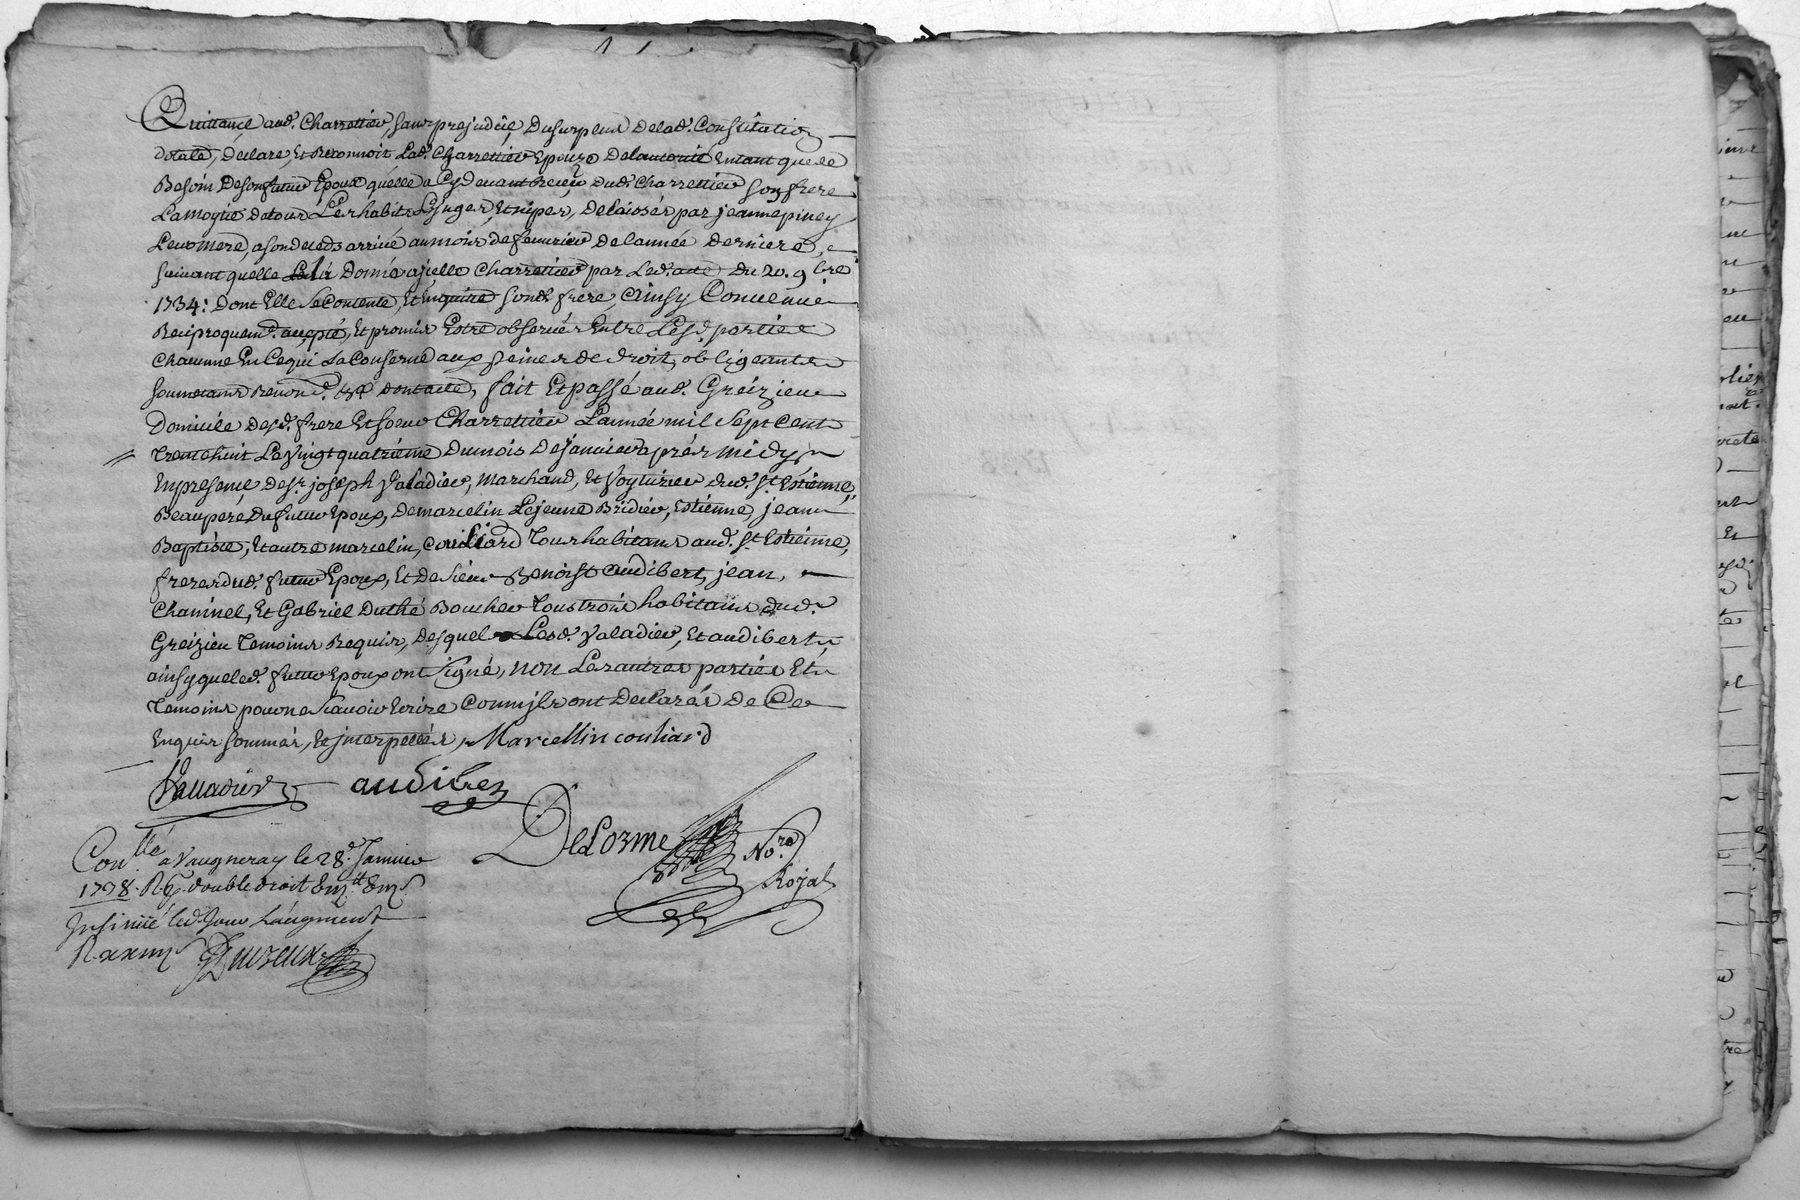 Quittance aud. Charrettier, sans prejudice, Du surplus Delad. Constitution
dotale, declare, Et Reconnoit Lad. Charrettier Epouze De lautorité Entant quede
Besoin De son futur Epoux quelle a Cy devant Receu dud. Charrettier son frere
La moytié de tous Les habits Linges, Et nipes, delaissés par jeanne piney
Leur mere, a son deceds arrivé au mois de fevrier De lannée derniere,
suivant quelle donné a jcelle Charrettier par Led. acte du 20. 9bre
1734: Dont Elle se Contente, Et En quitte sond. frere, Ainsy Convenu
Reciproquemt. accepté, Et promis Estre observér Entre Lesd. parties
Chacune En Ce qui La Conserne aux peines de droit, obligeants
soumettans Renonc. dont acte, fait Et passé aud. Greizieu
Domicile desd. frere Et soeur Charrettier L'année mil sept Cent
trente huit Le vingt quatrieme Du mois De janvier aprés midy
En presence de sr. joseph valadier, marchand, Et voyturier dud. st. Estienne,
Beaupere Du futur Epoux, De marcelin Lejeune Bridier, Estienne, jean
Baptiste, Et autre marcelin, Couliard Tous habitans aud. st. Estienne,
freres dud. futur Epoux, Et De sieur Benoist audibert, jean,
Chaninel, Et Gabriel Duthé Boucher Tous trois habitans dud.
Greizieu Temoins Requis, desquels Lesd. valadier, Et audibert
ainsy que led. futur Epoux ont signé, non Les autres parties Et
Temoins pour ne sçavoir Ecrire Comm jls ont Declarés De Ce
Enquis sommés, Et jnterpellés, Marcellin couliard
Valladier audiber
DeLorme No.re
Royal
Con.llé a Vaugneray le 28e. Janvier
1738. R. double droit
Insinué led. Jour Laugment
R.